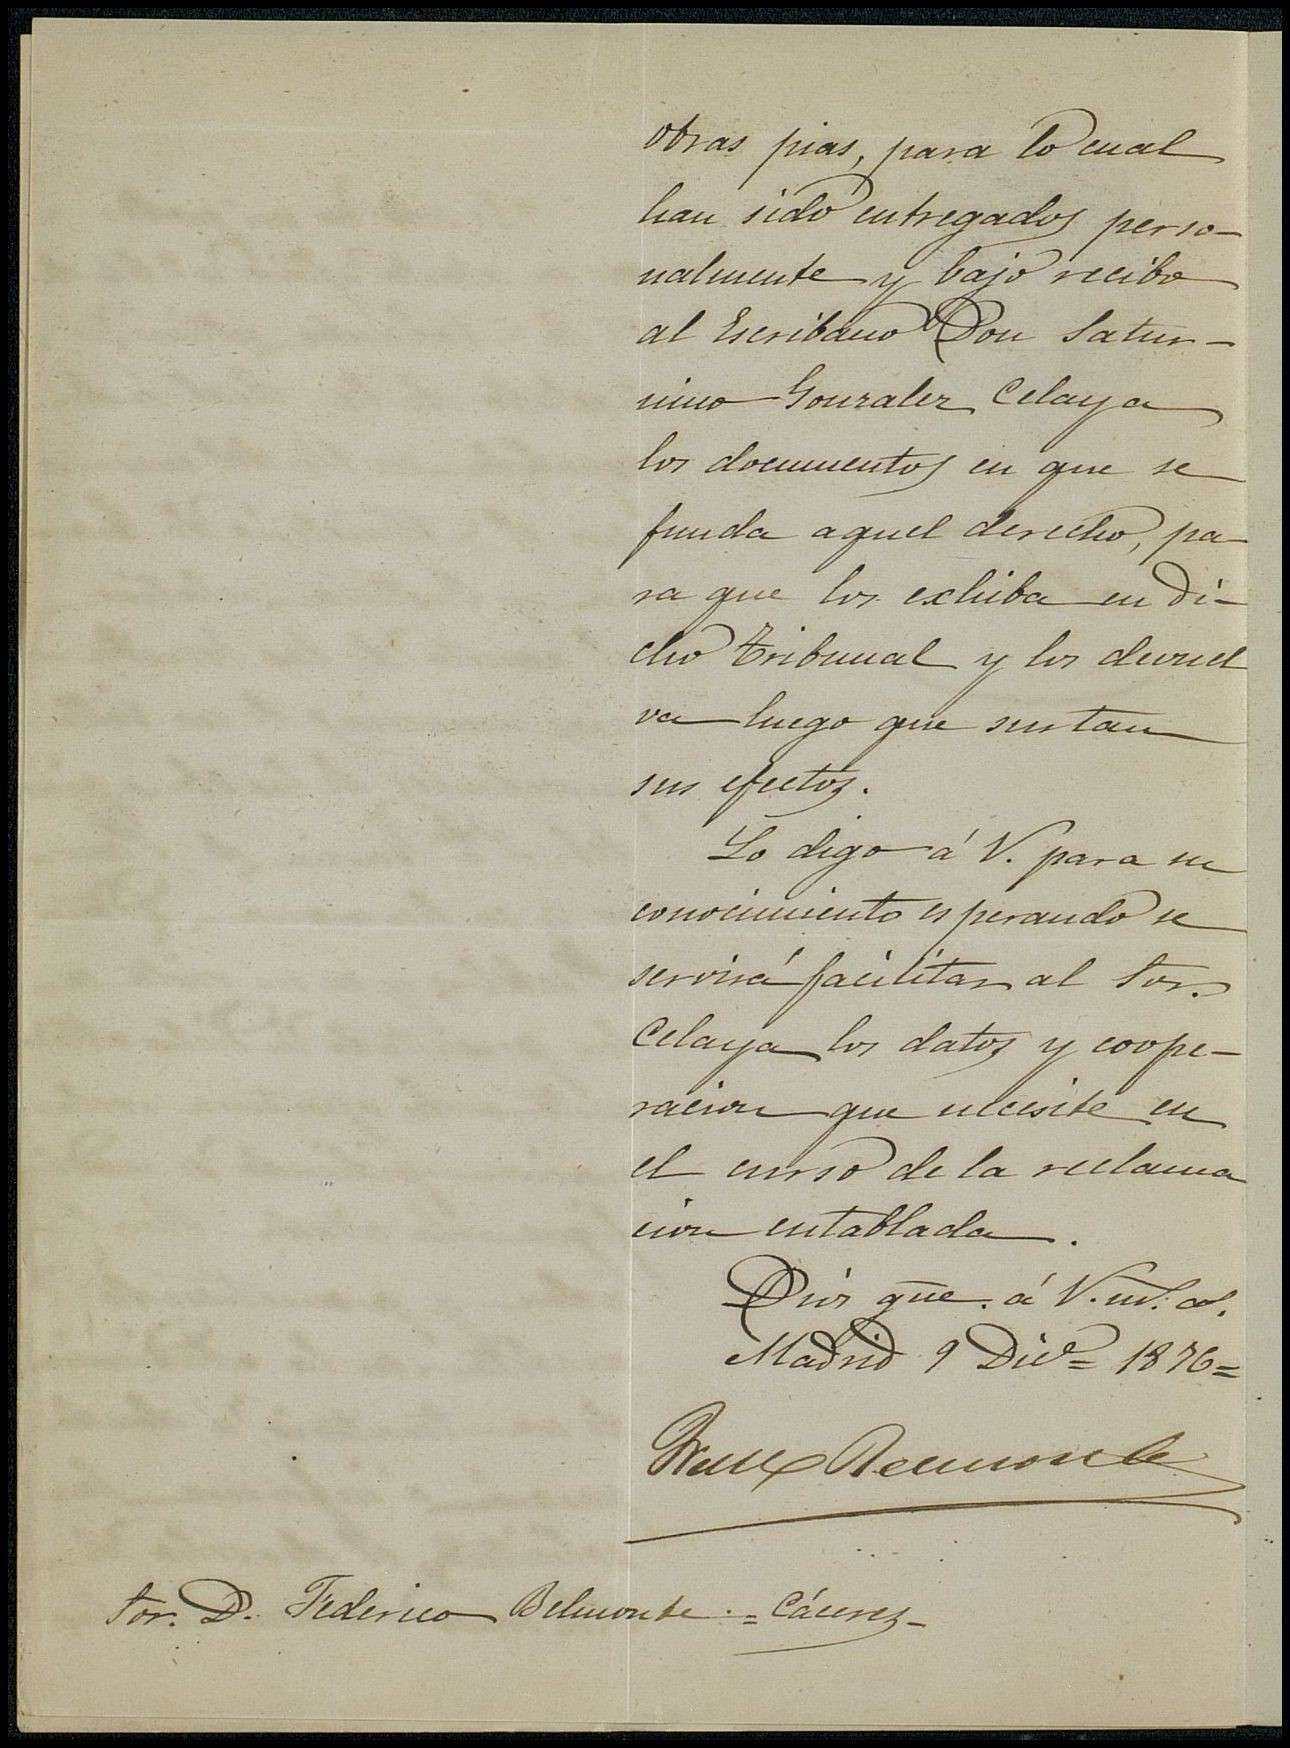 obras pias, para lo cual
han sido entregados perso-
nalmente y bajo recibo
al Escribano Don Satur-
nino Gonzalez Celaya
los documentos en que se
funda aquel derecho, pa-
ra que los exhiba en di-
cho Tribunal y los devuel
va luego que surtan
sus efectos.
Lo digo á V. para su
conocimiento esperando se
servirá facilitar al Sor.
Celaya los datos y coope-
racion que necesite en
el curso de la reclama
cion entablada.
Dios gūe. á V. ms. as.
Madrid 9 Dice= 1876=
Sor. D. Federico Belmonte.= Cáceres-